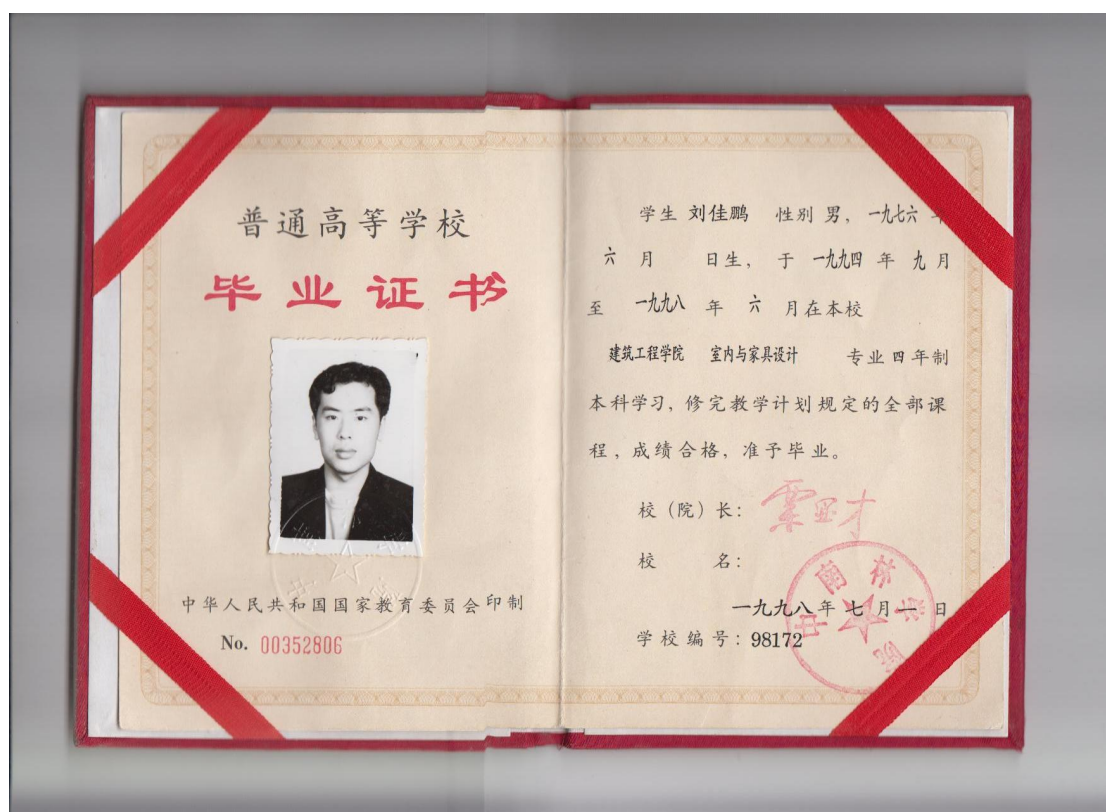 普通高等学校
毕业证书
中华人民共和国国家教育委员会印制
No. 00352806
学生 刘佳鹏 性别 男, 一九七六 年
六 月 日生, 于 一九九四 年 九 月
至 一九九八 年 六 月在本校
建筑工程学院 室内与家具设计 专业四年制
本科学习, 修完教学计划规定的全部课
程, 成绩合格, 准予毕业。
校(院)长:
校 名:
中南林学院
一九九八年七月一日
学校编号: 98172